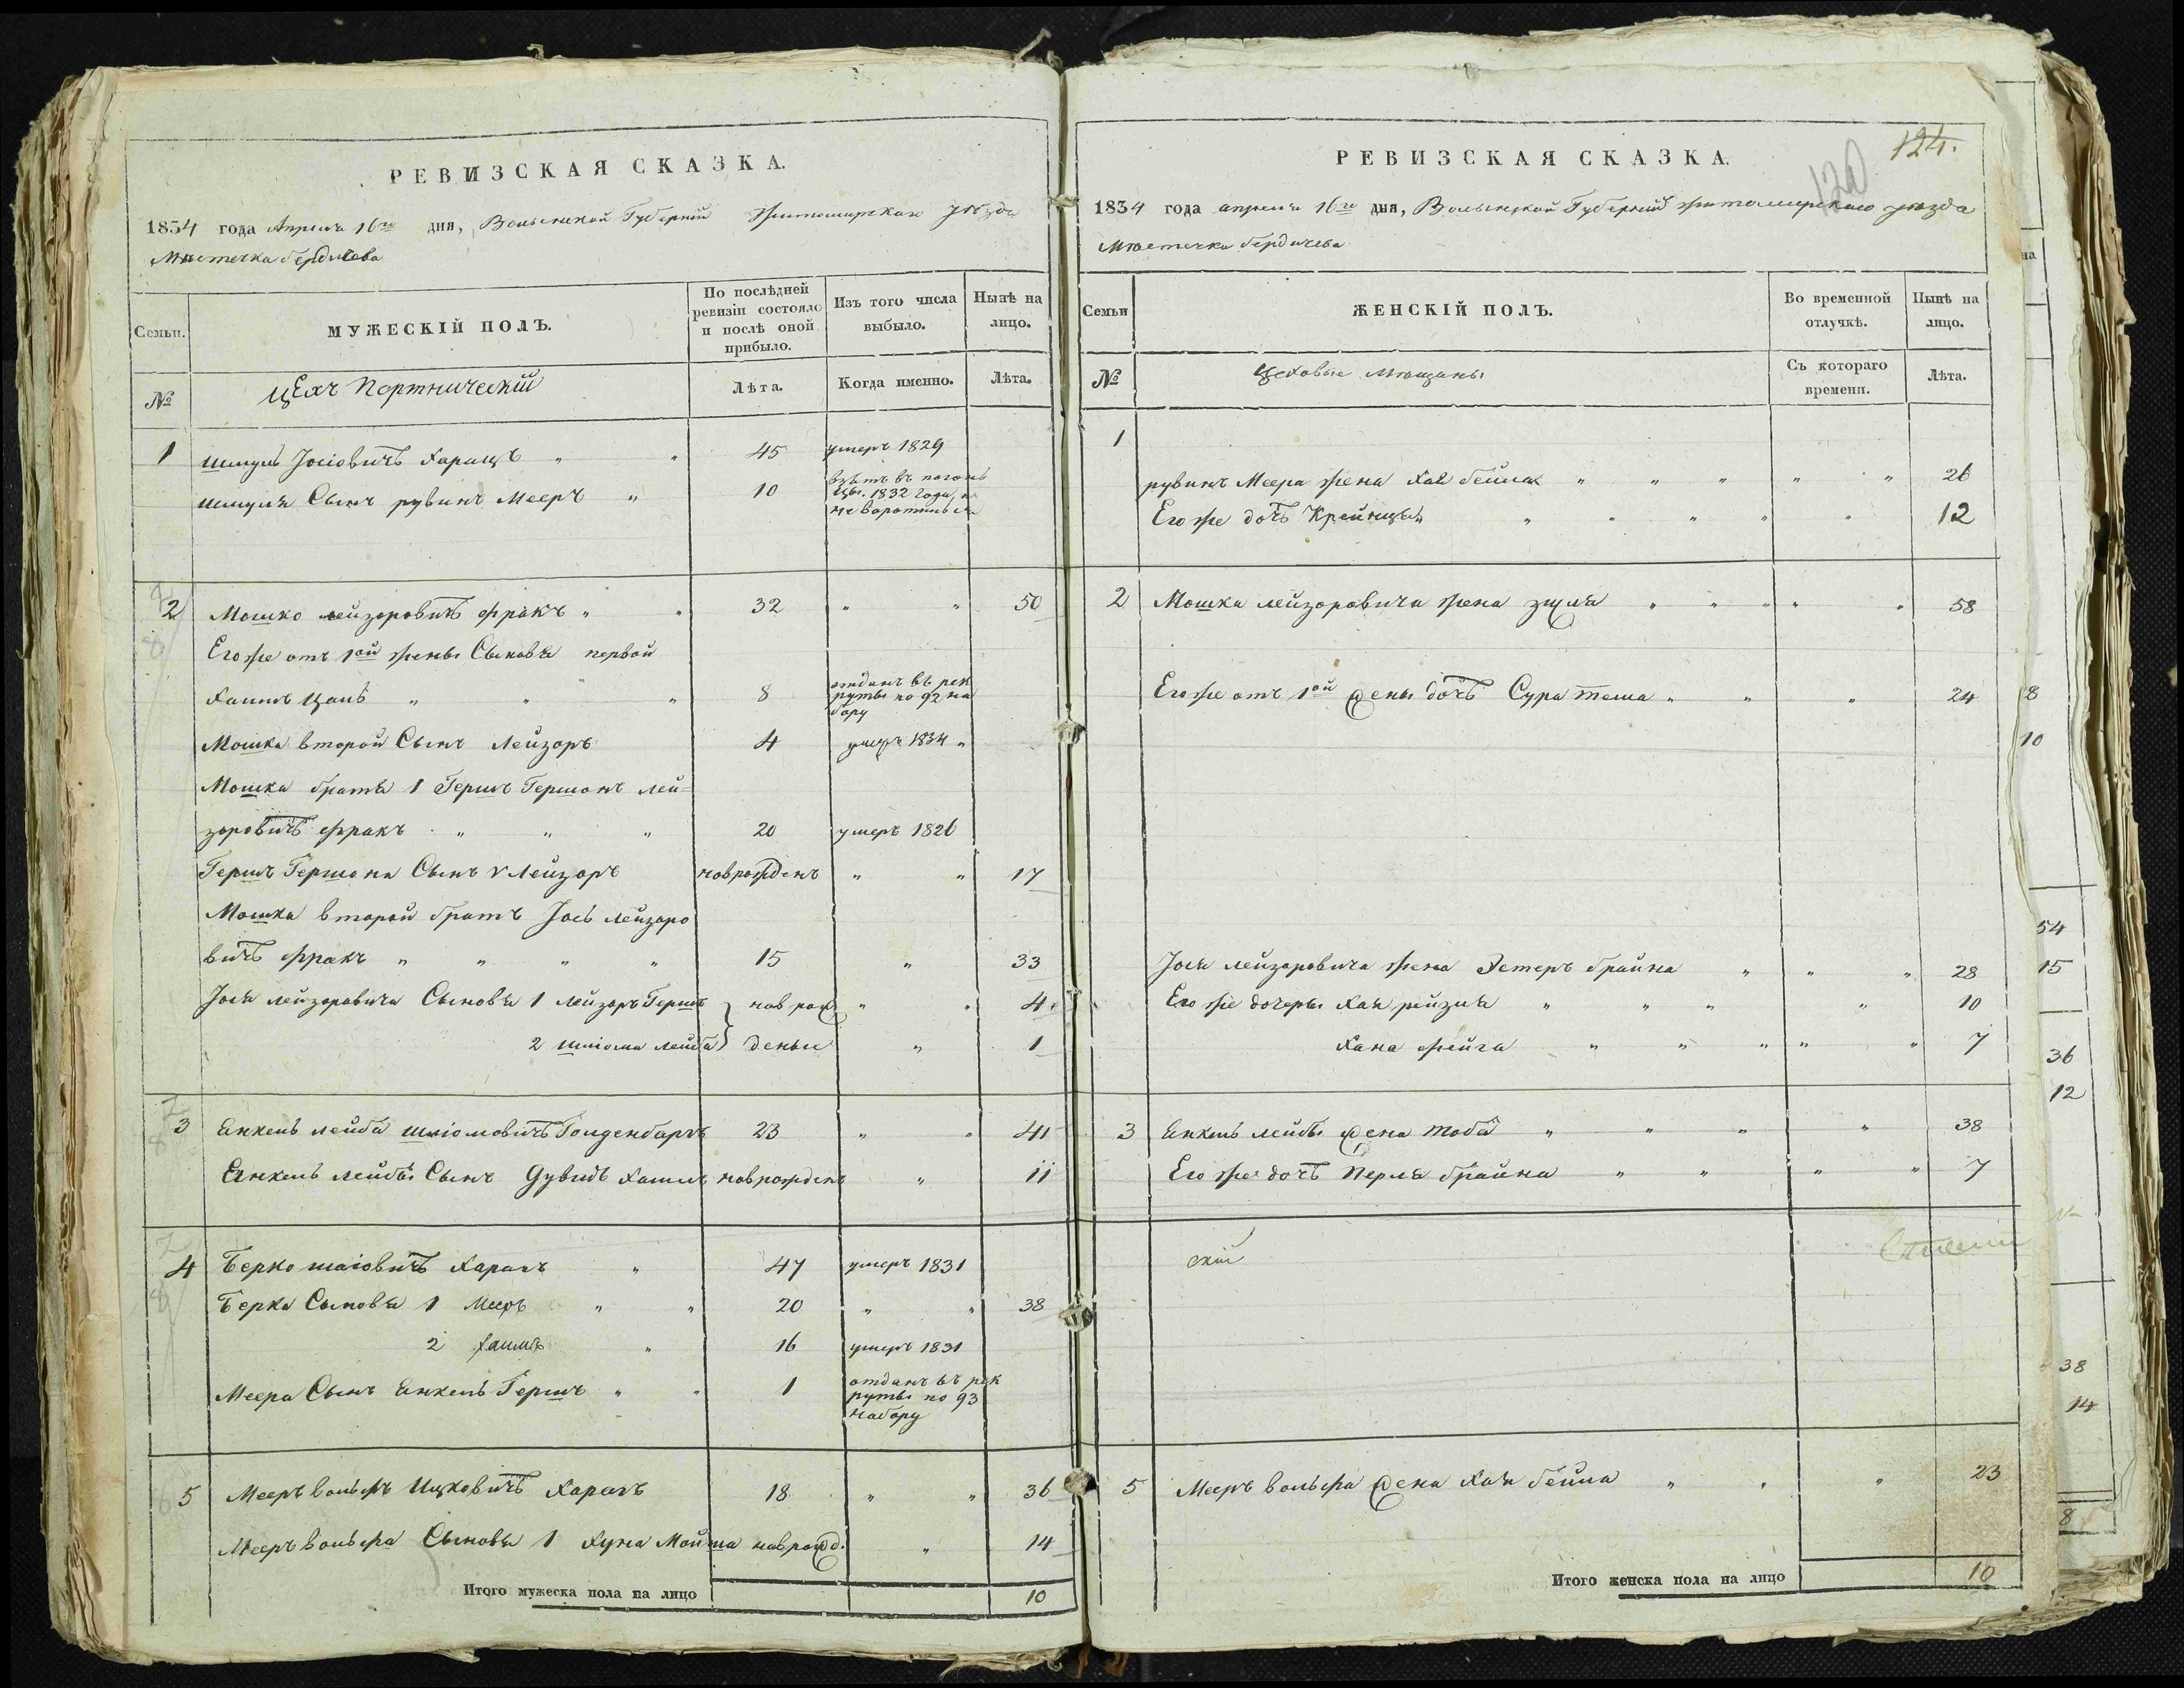 РЕВИЗСКАЯ СКАЗКА.
1834 года Апреля 16го дня, Волынской Губернии Житомирскаго уѣзда
Мѣстечка Бердичева
Семьи.
МУЖЕСКІЙ ПОЛЪ.
По послѣдней ревизіи состояло и послѣ оной прибыло.
Изъ того числа выбыло.
Нынѣ на лицо.
№
Цехъ Портническій
Лѣта.
Когда именно.
Лѣта.
1 Шмуль Іосіовичъ Харащъ " " 45 умеръ 1829
Шмуля Сынъ рувинъ Мееръ " 10 взѣтъ въ погонь
1832 года, и
не воротился
2 Мошко лейзоровичъ фракъ " " 32 " " 50
Его же отъ 1ой жены Сыновя первой
Хаимъ Цаль " " " 8 отданъ въ рек
руты по 92 на
бору
Мошка второй Сынъ Лейзоръ 4 умеръ 1834 "
Мошка братя 1 Гершъ Гершонъ лей=
зоровичъ фракъ " " " 20 умеръ 1826
Гершъ Гершона Сынъ Лейзоръ новрожденъ " " 17
Мошка второй братъ Іось лейзоро
вичъ фракъ " " " " 15 " 33
Іося лейзоровича Сыновя 1 лейзоръ Гершъ } новрож " " 4
2 Шліома лейба } деные " 1
3 Янкель лейба Шліомовичъ Голденбаргъ 23 " " 41
Янкель лейбы Сынъ Дувидъ Хаимъ новрожденъ " 11
4 Берко шаіовичъ Харащъ " 47 умеръ 1831
Берка Сыновя 1 Мееръ " " 20 " " 38
2 Хаимъ " 16 умеръ 1831
Меера Сынъ Янкель Гершъ " " 1 отданъ въ рек
руты по 93
набору
5 Мееръ вольфъ Ицковичъ Харащъ 18 " " 36
Мееръ вольфа Сыновя 1 Хуна Мойша новрожд. " 14
Итого мужеска пола на лицо 10
124.
120
РЕВИЗСКАЯ СКАЗКА.
1834 года апреля 16го дня, Волынской Губерніи Житомирскаго уѣзда
Мѣстечка Бердичева
Семьи
ЖЕНСКІЙ ПОЛЪ.
Во временной отлучкѣ.
Нынѣ на лицо.
№
Цеховые Мѣщаны
Съ котораго времени.
Лѣта.
1
рувинъ Меера жена Хая бейла " " " " " 26
Его же дочъ Крейнцы " " " " " 12
2 Мошка лейзоровича жена " " " " " 58
Его же отъ 1ой жены дочъ Сура теша " " " 24
Іося лейзоровича жена Эстеръ брайна " " " 28
Его же дочеры Хая рейзля " " " " 10
Хана фейга " " " " " 7
3 Янкель лейбы жена тоба " " " " 38
Его же дочъ Перля брайна " " " " 7
скій
5 Мееръ вольфа жена Хая бейла " " " 23
Итого женска пола на лицо 10
на
8
10
54
15
36
12
38
14
8